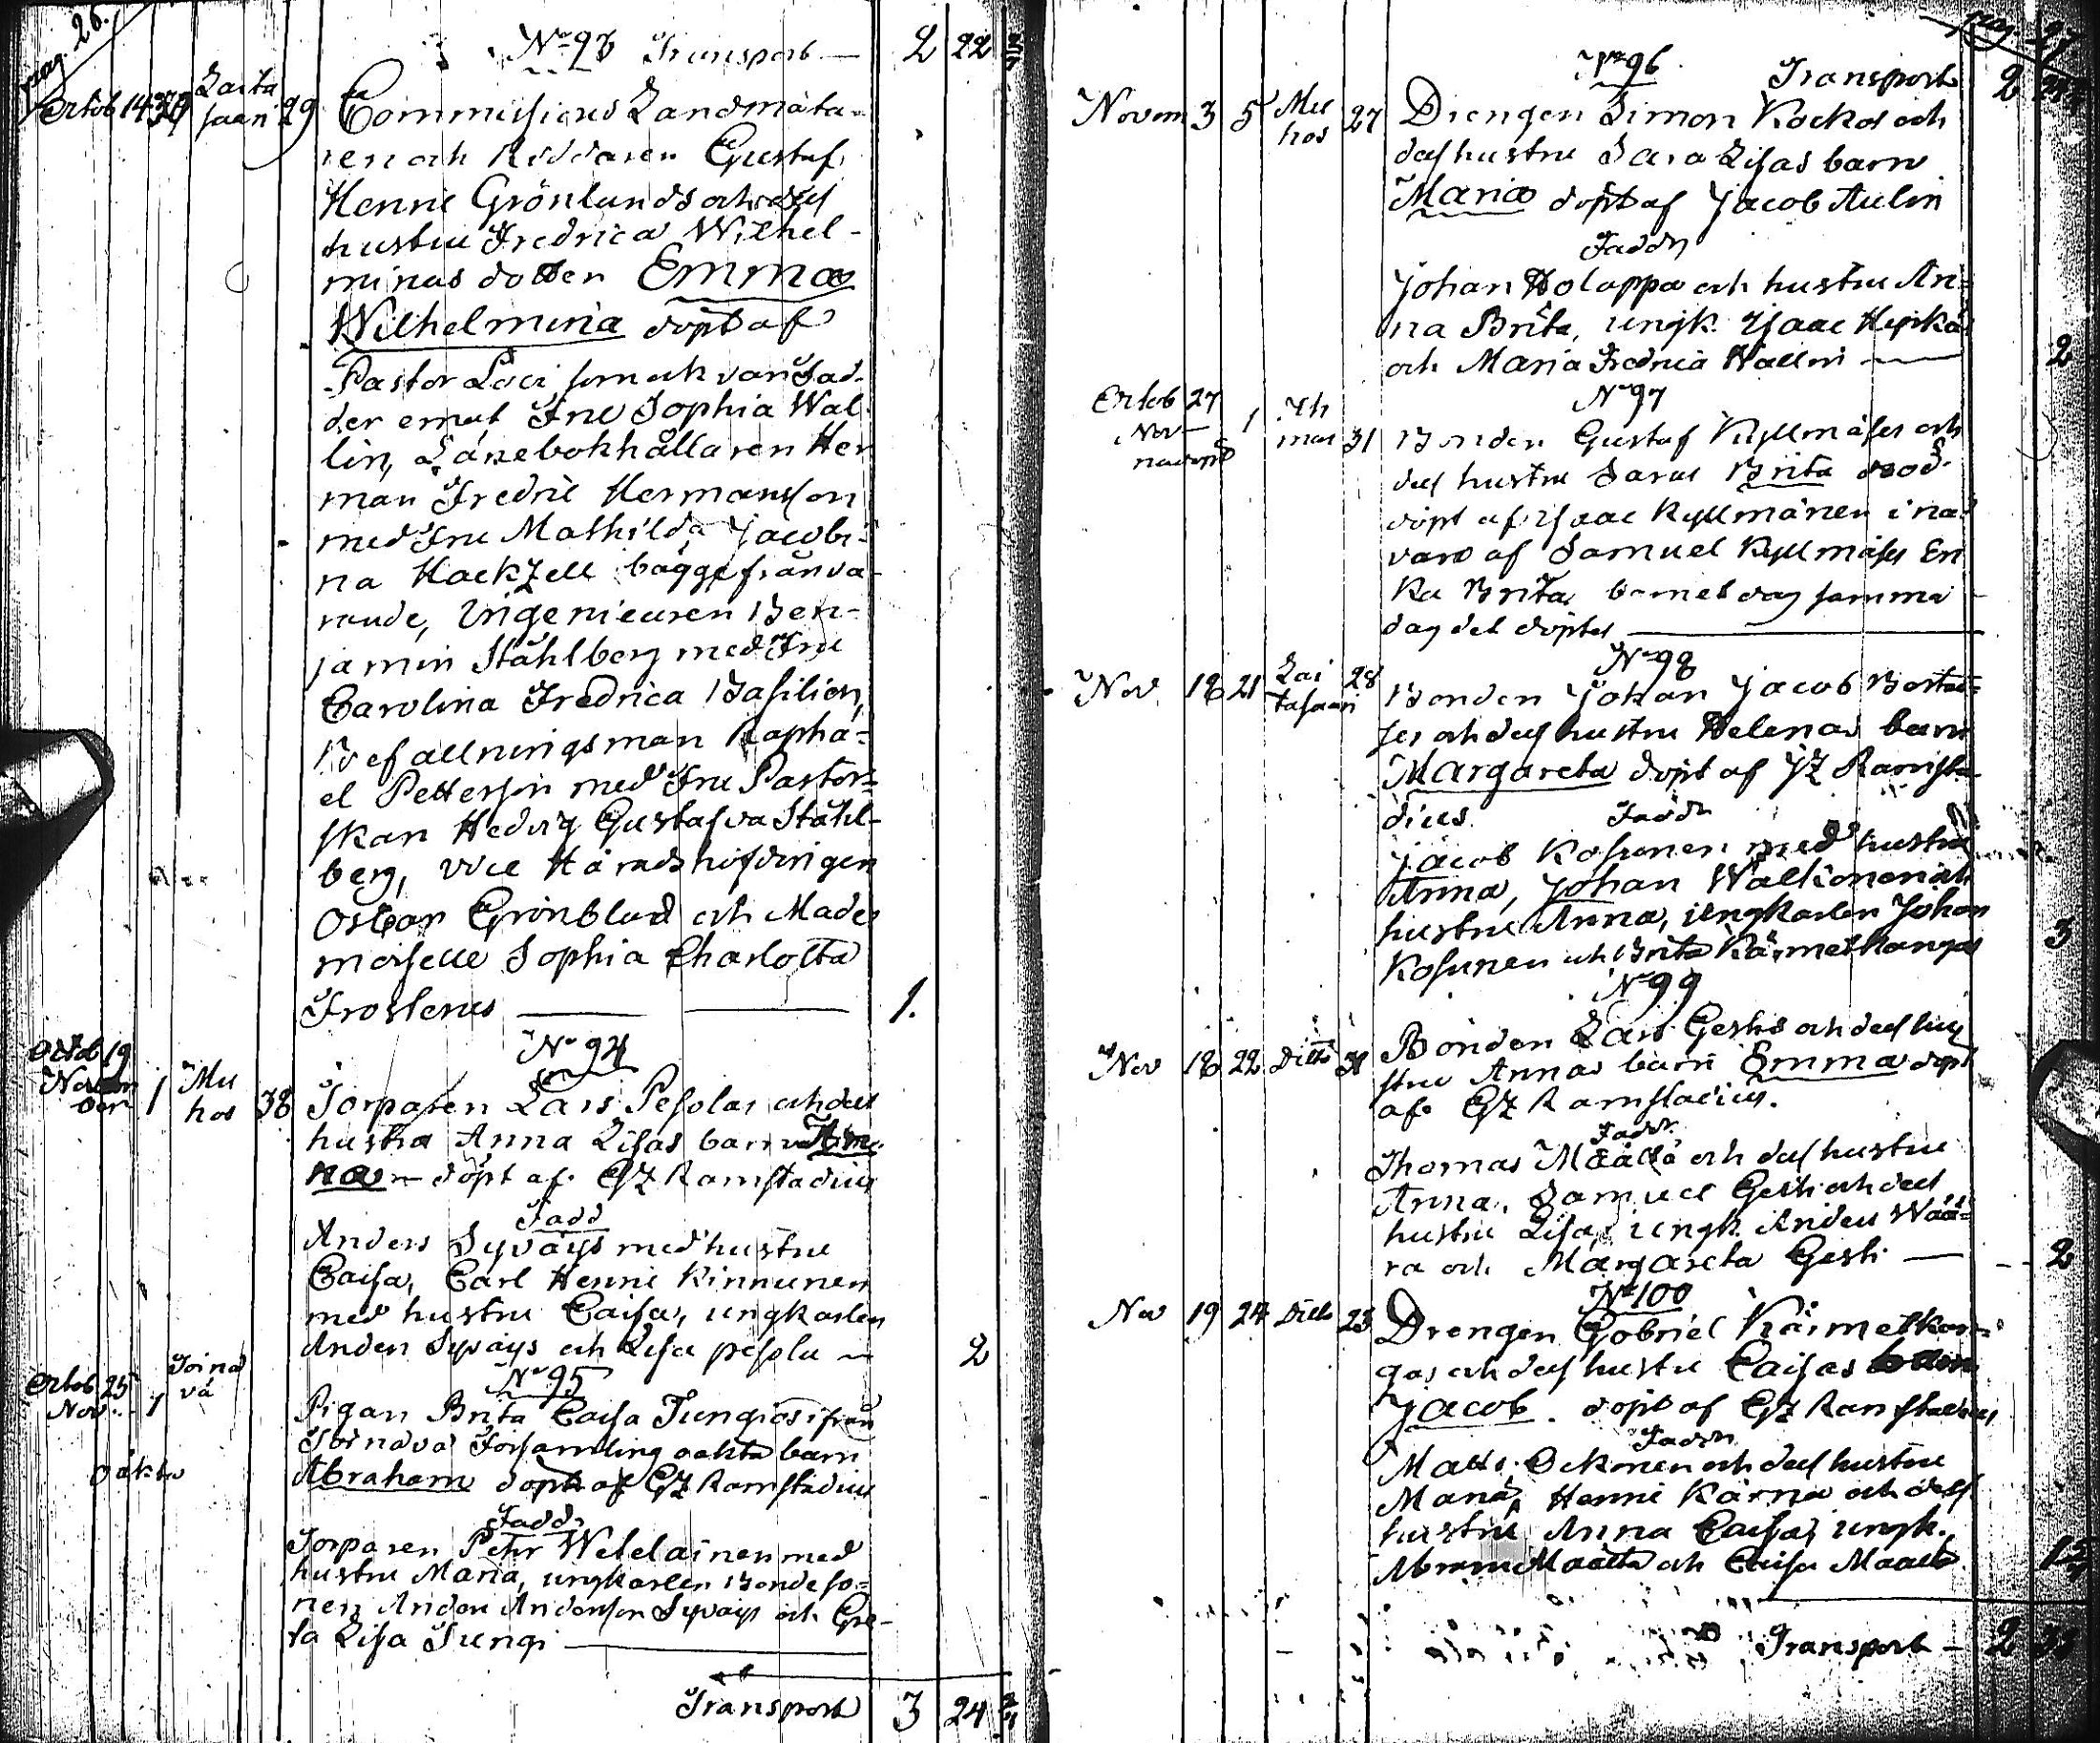 pag. 26.
No 93 Transport — 2 22
Octob 14 Laita
saari 29 Commissions Landmäta-
ren och Riddaren Gustaf
Henric Grönlunds och dess
hustru Fredrica Wilhel-
minas dotter Emma
Wilhelmina döpt af
Pastor Loci som ock var Fad-
der emot Fru Sophia Wal
lin, Länebokhållaren Her
man Fredric Hermanson
med Fru Mathilda Jacobi-
na Hackzell bägge frånva-
rande, Ingenieuren Ben-
jamin Ståhlberg med Fru
Carolina Fredrica Basilier,
Befallningsman Rapha-
el Petterson med Fru Pastor-
skan Hedvig Gustafva Ståhl-
berg, vice Häradshöfdingen
Oscar Grönblad och Made
moiselle Sophia Charlotta
Frosterus 1.
No 94
Octob 19
Novem
ber 1 Mu
hos 38 Torparen Lars Pesolas och dess
hustru Anna Lisas barn
döpt af GZ Ramstadius
Fadd
Anders Syväys med hustru
Caisa, Carl Henric Kinnunen
med hustru Caisa, ungkarlen
Anders Syväys och Lisa Pesola — 2
No 95
Octob 25
Nov. 1
Pigan Brita Caisa Jungios ifrån
Församling oäkta barn
oäkta
Abraham döpt af GZ Ramstadius
Fadd.
Torparen Petter Wetelainen med
hustru Maria, ungkarlen Bondeso-
nen Anders Anderson Syväys och Gre-
ta Lisa Jungi
Transport 3 24
pag. 27
No 96 Transport 2
Novem 3 5 Mu
hos 27 Drengen Simon Kockos och
dess hustru Sara Lisas barn
Maria döpt af Jacob Aulin
Faddr
Johan Holappa och hustru An-
na Brita, ungk. Isaac
och Maria Fredrica Wallin — 2
No 97
Octob 27
Nov — 1
nöddöpt 31 Bonden Gustaf Kyllmäses och
dess hustru Saras Brita nöd-
döpt af Isaac Kyllmänen i när
varo af Samuel Kyllmäses Eri
ka Brita, barnet dog samma
dag det döptes
No 98
Nov. 18 21 Lai
tasaari 28 Bonden Johan Jacob
och dess hustru Helenas barn
Margareta döpt af GZ Ramsta-
dius. Faddr
Jacob Kosunen med hustru
Anna, Johan Walkonen och
hustru Anna, ungkarlen Johan
Kosunen och Brita Kärmetkangas 3
No 99
Nov 18 22 Ditto Bonden Lars Gestis och dess hu
stru Annas barn Emma döpt
af GZ Ramstadius.
Faddr.
Thomas Määttä och dess hustru
Anna, Samuel Gesti och dess
hustru Lisa, ungk. Anders Waa-
ra och Margareta Gesti — 2
No 100
Nov 19 24 Ditto 23 Drengen Gabriel Kärmetkan-
gas och dess hustru Caisas barn
Jacob. döpt af GZ Ramstadius
Faddr
Matts Ockonen och dess hustru
Maria, Henric Kärnä och dess
hustru Anna Caisa, ungk.
Abram Määttä och Caisa Määttä
Transport — 2